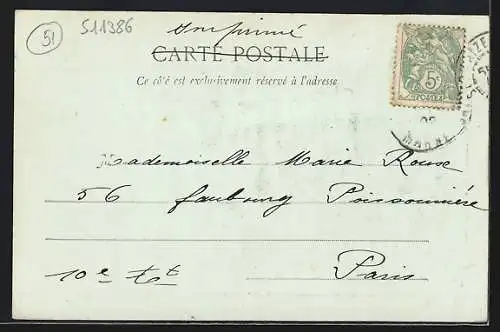 51
511386
Imprimé
CARTE POSTALE
Ce côté est exclusivement réservé à l'adresse.
5c
POSTES
MARNE
Mademoiselle Marie Rousse
56 faubourg Poissonnière
10e
Paris